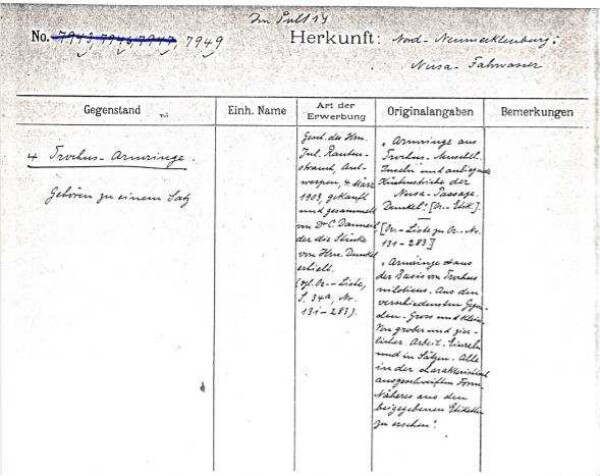 Im Pult 14
No. 7943, 7946, 7947, 7949
Herkunft: Nord-Neumecklenburg:
Nusa-Fahrwasser
Gegenstand
Einh. Name
Art der
Erwerbung
Originalangaben
Bemerkungen
4 Trochus-Armringe.
Gehören zu einem Satz
Gesch. des Hrn.
Jul. Rauten-
strauch, Ant-
werpen, 4 März
1903, gekauft
und gesammelt
von Dr C. Danneil
der die Stücke
von Hrn. Dunkel
erhielt.
(vgl. Or.-Liste,
S. 34a, Nr.
131-283).
„Armringe aus
Trochus-Muschel.
Inseln und anliegende
Küstenstriche der
Nusa-Passage.
Dunkel". [Or.-Etik].
[Or-Liste zu Or-Nr.
131-283.]
„Armringe aus
der Basis von Trochus
niloticus. Aus den
verschiedensten
Gross und klein.
Von grober und zier-
licher Arbeit. Einzeln
und in Sätzen. Alle
in der charakteristisch
ausgeschweiften Form.
Näheres aus den
beigegebenen Etiketten
zu ersehen".